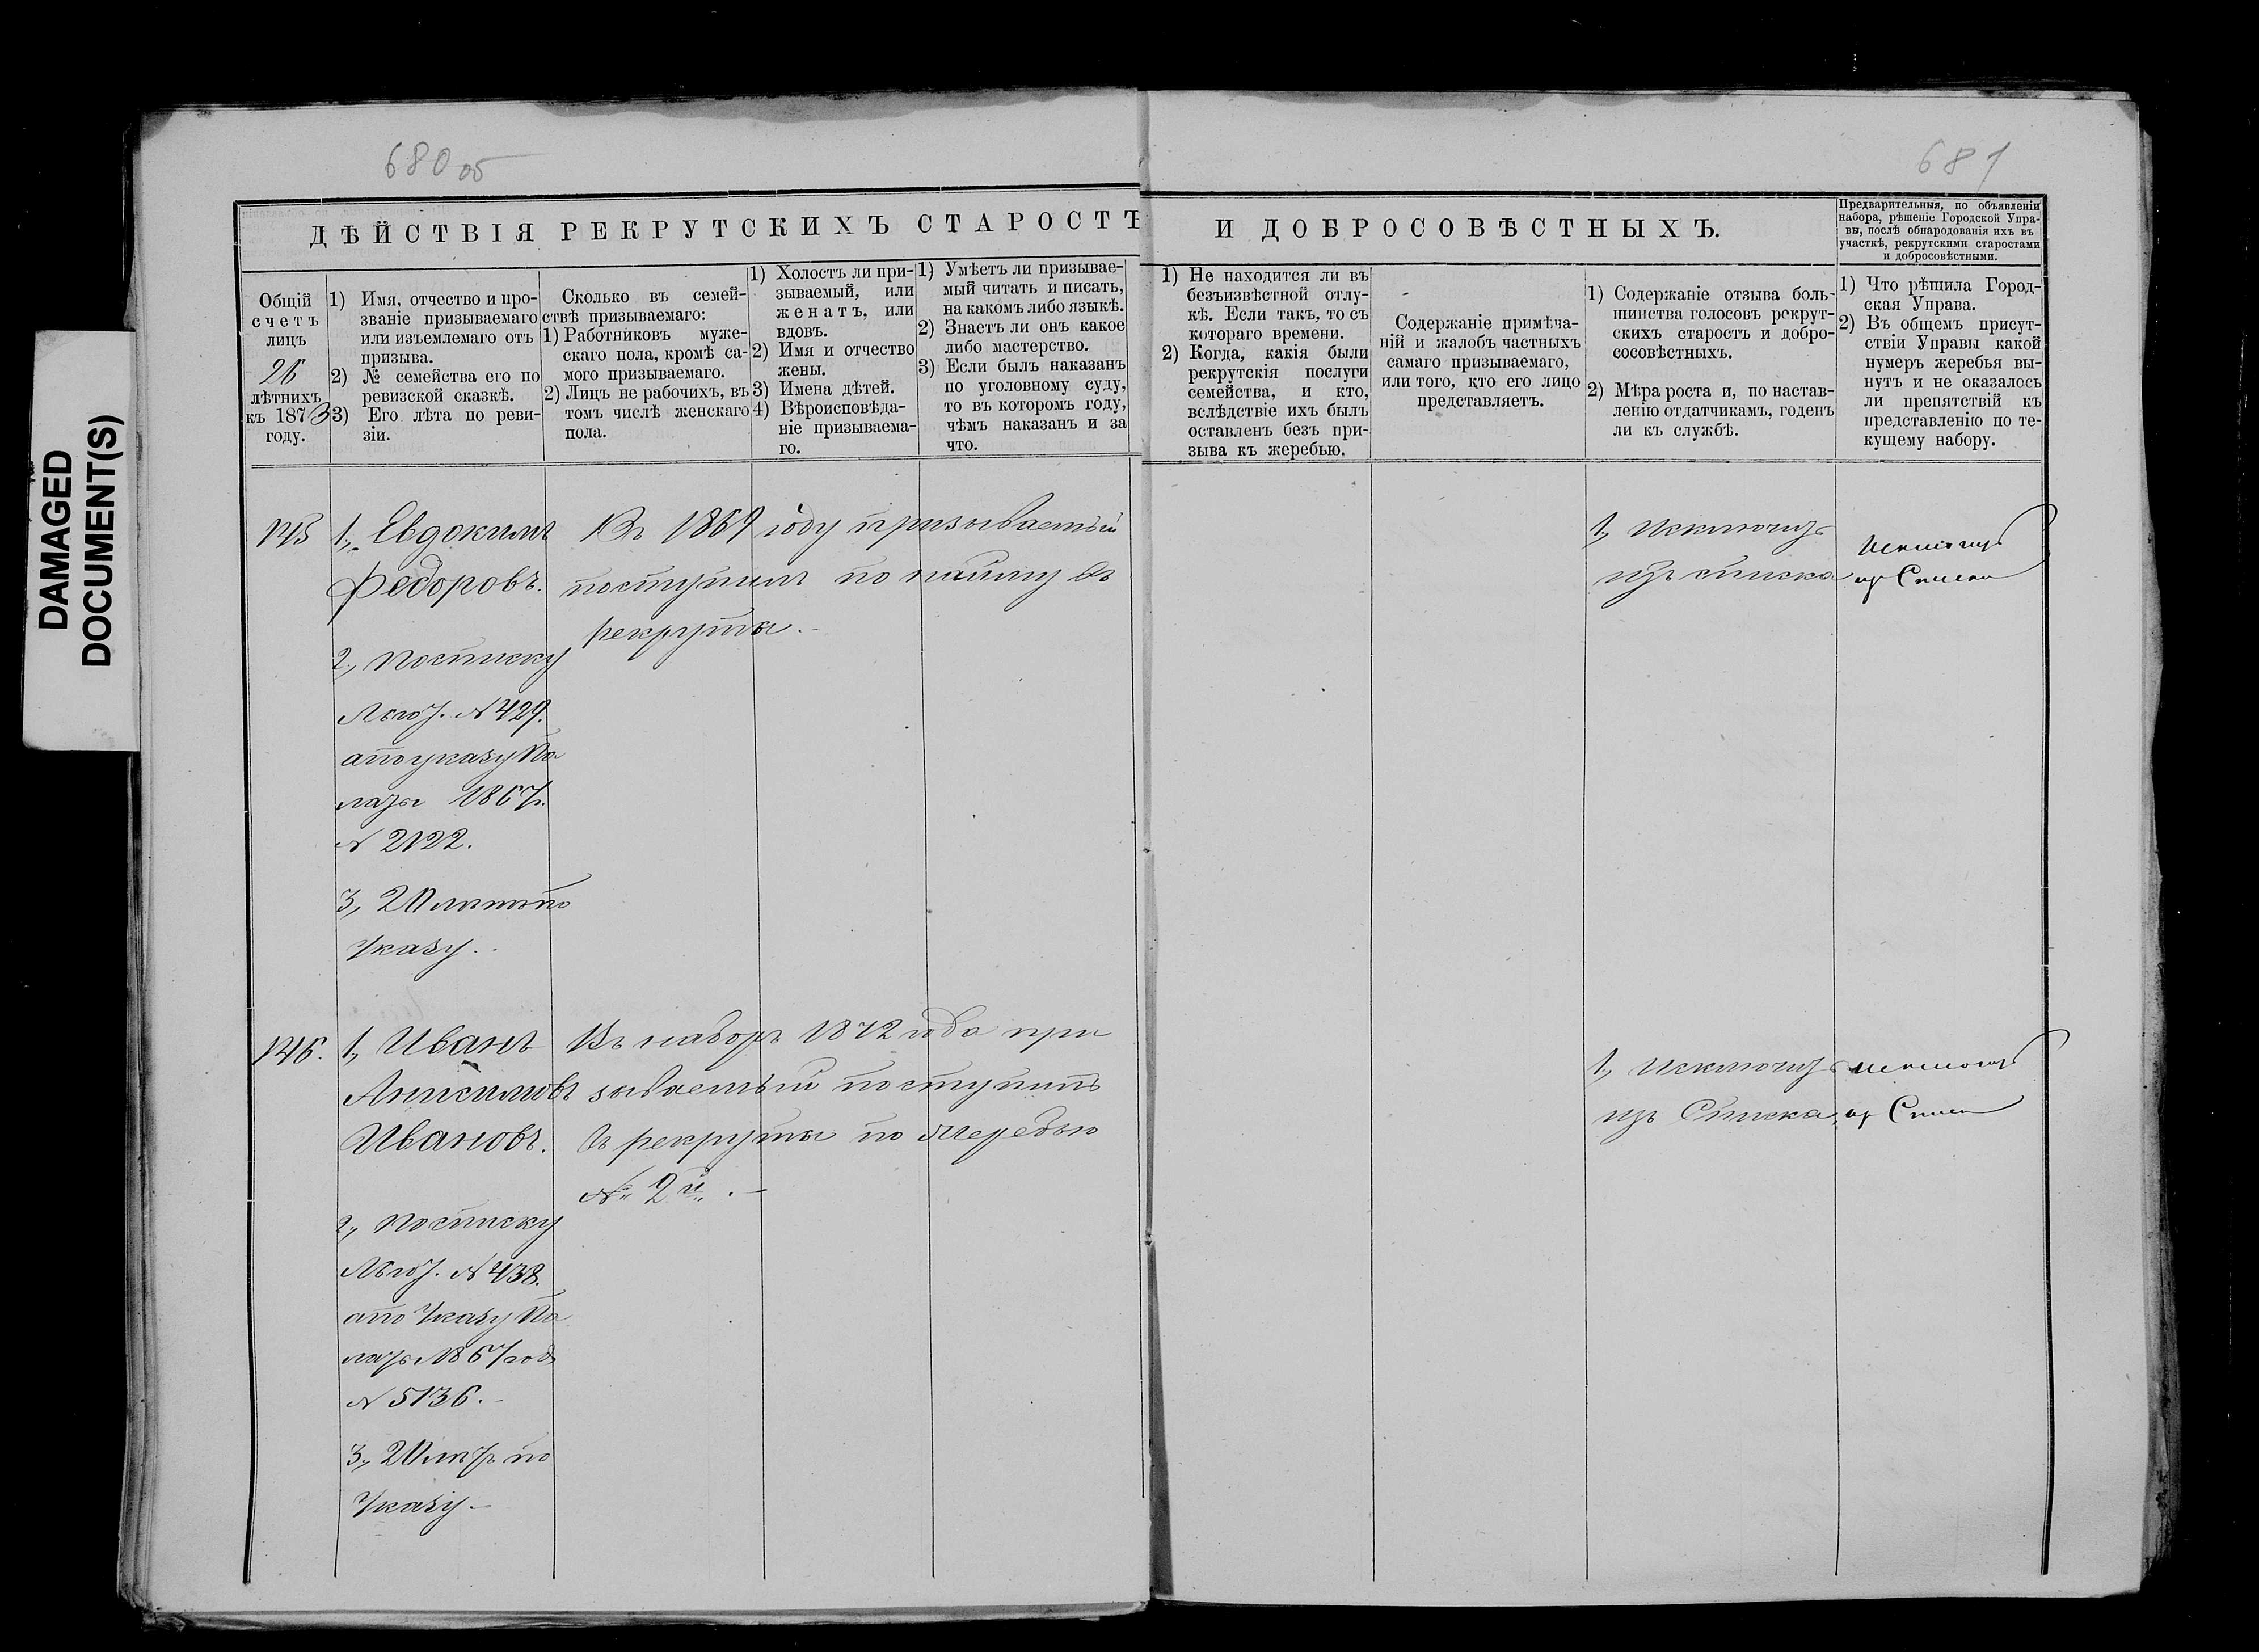 680 об
681
DAMAGED
DOCUMENT(S)
ДѢЙСТВІЯ РЕКРУТСКИХЪ СТАРОСТЪ
И ДОБРОСОВѢСТНЫХЪ.
Предварительныя, по объявленіи
набора, рѣшеніе Городской Упра-
вы, послѣ обнародованія ихъ въ
участкѣ, рекрутскими старостами
и добросовѣстными.
Общій
счетъ
лицъ
26
лѣтнихъ
къ 1873
году.
1) Имя, отчество и про-
званіе призываемаго
или изъемлемаго отъ
призыва.
2) № семейства его по
ревизской сказкѣ.
3) Его лѣта по реви-
зіи.
Сколько въ семей-
ствѣ призываемаго:
1) Работниковъ муже-
скаго пола, кромѣ са-
мого призываемаго.
2) Лицъ не рабочихъ, въ
томъ числѣ женскаго
пола.
1) Холостъ ли при-
зываемый, или
женатъ, или
вдовъ.
2) Имя и отчество
жены.
3) Имена дѣтей.
4) Вѣроисповѣда-
ніе призываема-
го.
1) Умѣетъ ли призывае-
мый читать и писать,
на какомъ либо языкѣ.
2) Знаетъ ли онъ какое
либо мастерство.
3) Если былъ наказанъ
по уголовному суду,
то въ которомъ году,
чѣмъ наказанъ и за
что.
1) Не находится ли въ
безъизвѣстной отлу-
кѣ. Если такъ, то съ
котораго времени.
2) Когда, какія были
рекрутскія послуги
семейства, и кто,
вслѣдствіе ихъ былъ
оставленъ безъ при-
зыва къ жеребью.
Содержаніе примѣча-
ній и жалобъ частныхъ
самаго призываемаго,
или того, кто его лицо
представляетъ.
1) Содержаніе отзыва боль-
шинства голосовъ рекрут-
скихъ старостъ и добро-
сосовѣстныхъ.
2) Мѣра роста и, по настав-
ленію отдатчикамъ, годенъ
ли къ службѣ.
1) Что рѣшила Город-
ская Управа.
2) Въ общемъ присут-
ствіи Управы какой
нумеръ жеребья вы-
нутъ и не оказалось
ли препятствій къ
представленію по те-
кущему набору.
145
1, Евдокимъ
Федоровъ.
2, По списку
№ 429.
а по указу Па
латы 1867 г.
№ 2122.
3, 20 лѣтъ по
Указу.
Въ 1869 году призываемый
поступилъ по найму въ
рекруты.
1, Исключить
изъ списка
Исключить
из Списка
146.
1, Иванъ
Анисимовъ
Ивановъ.
2, По списку
№ 438.
а по Указу Па
латы 1867 года
№ 5136.
3, 20 лѣтъ по
Указу
Въ наборъ 1872 года при
зываемый поступилъ
въ рекруты по жеребью
№ 2й.
1, Исключить
изъ Списка
Исключить
из Списка